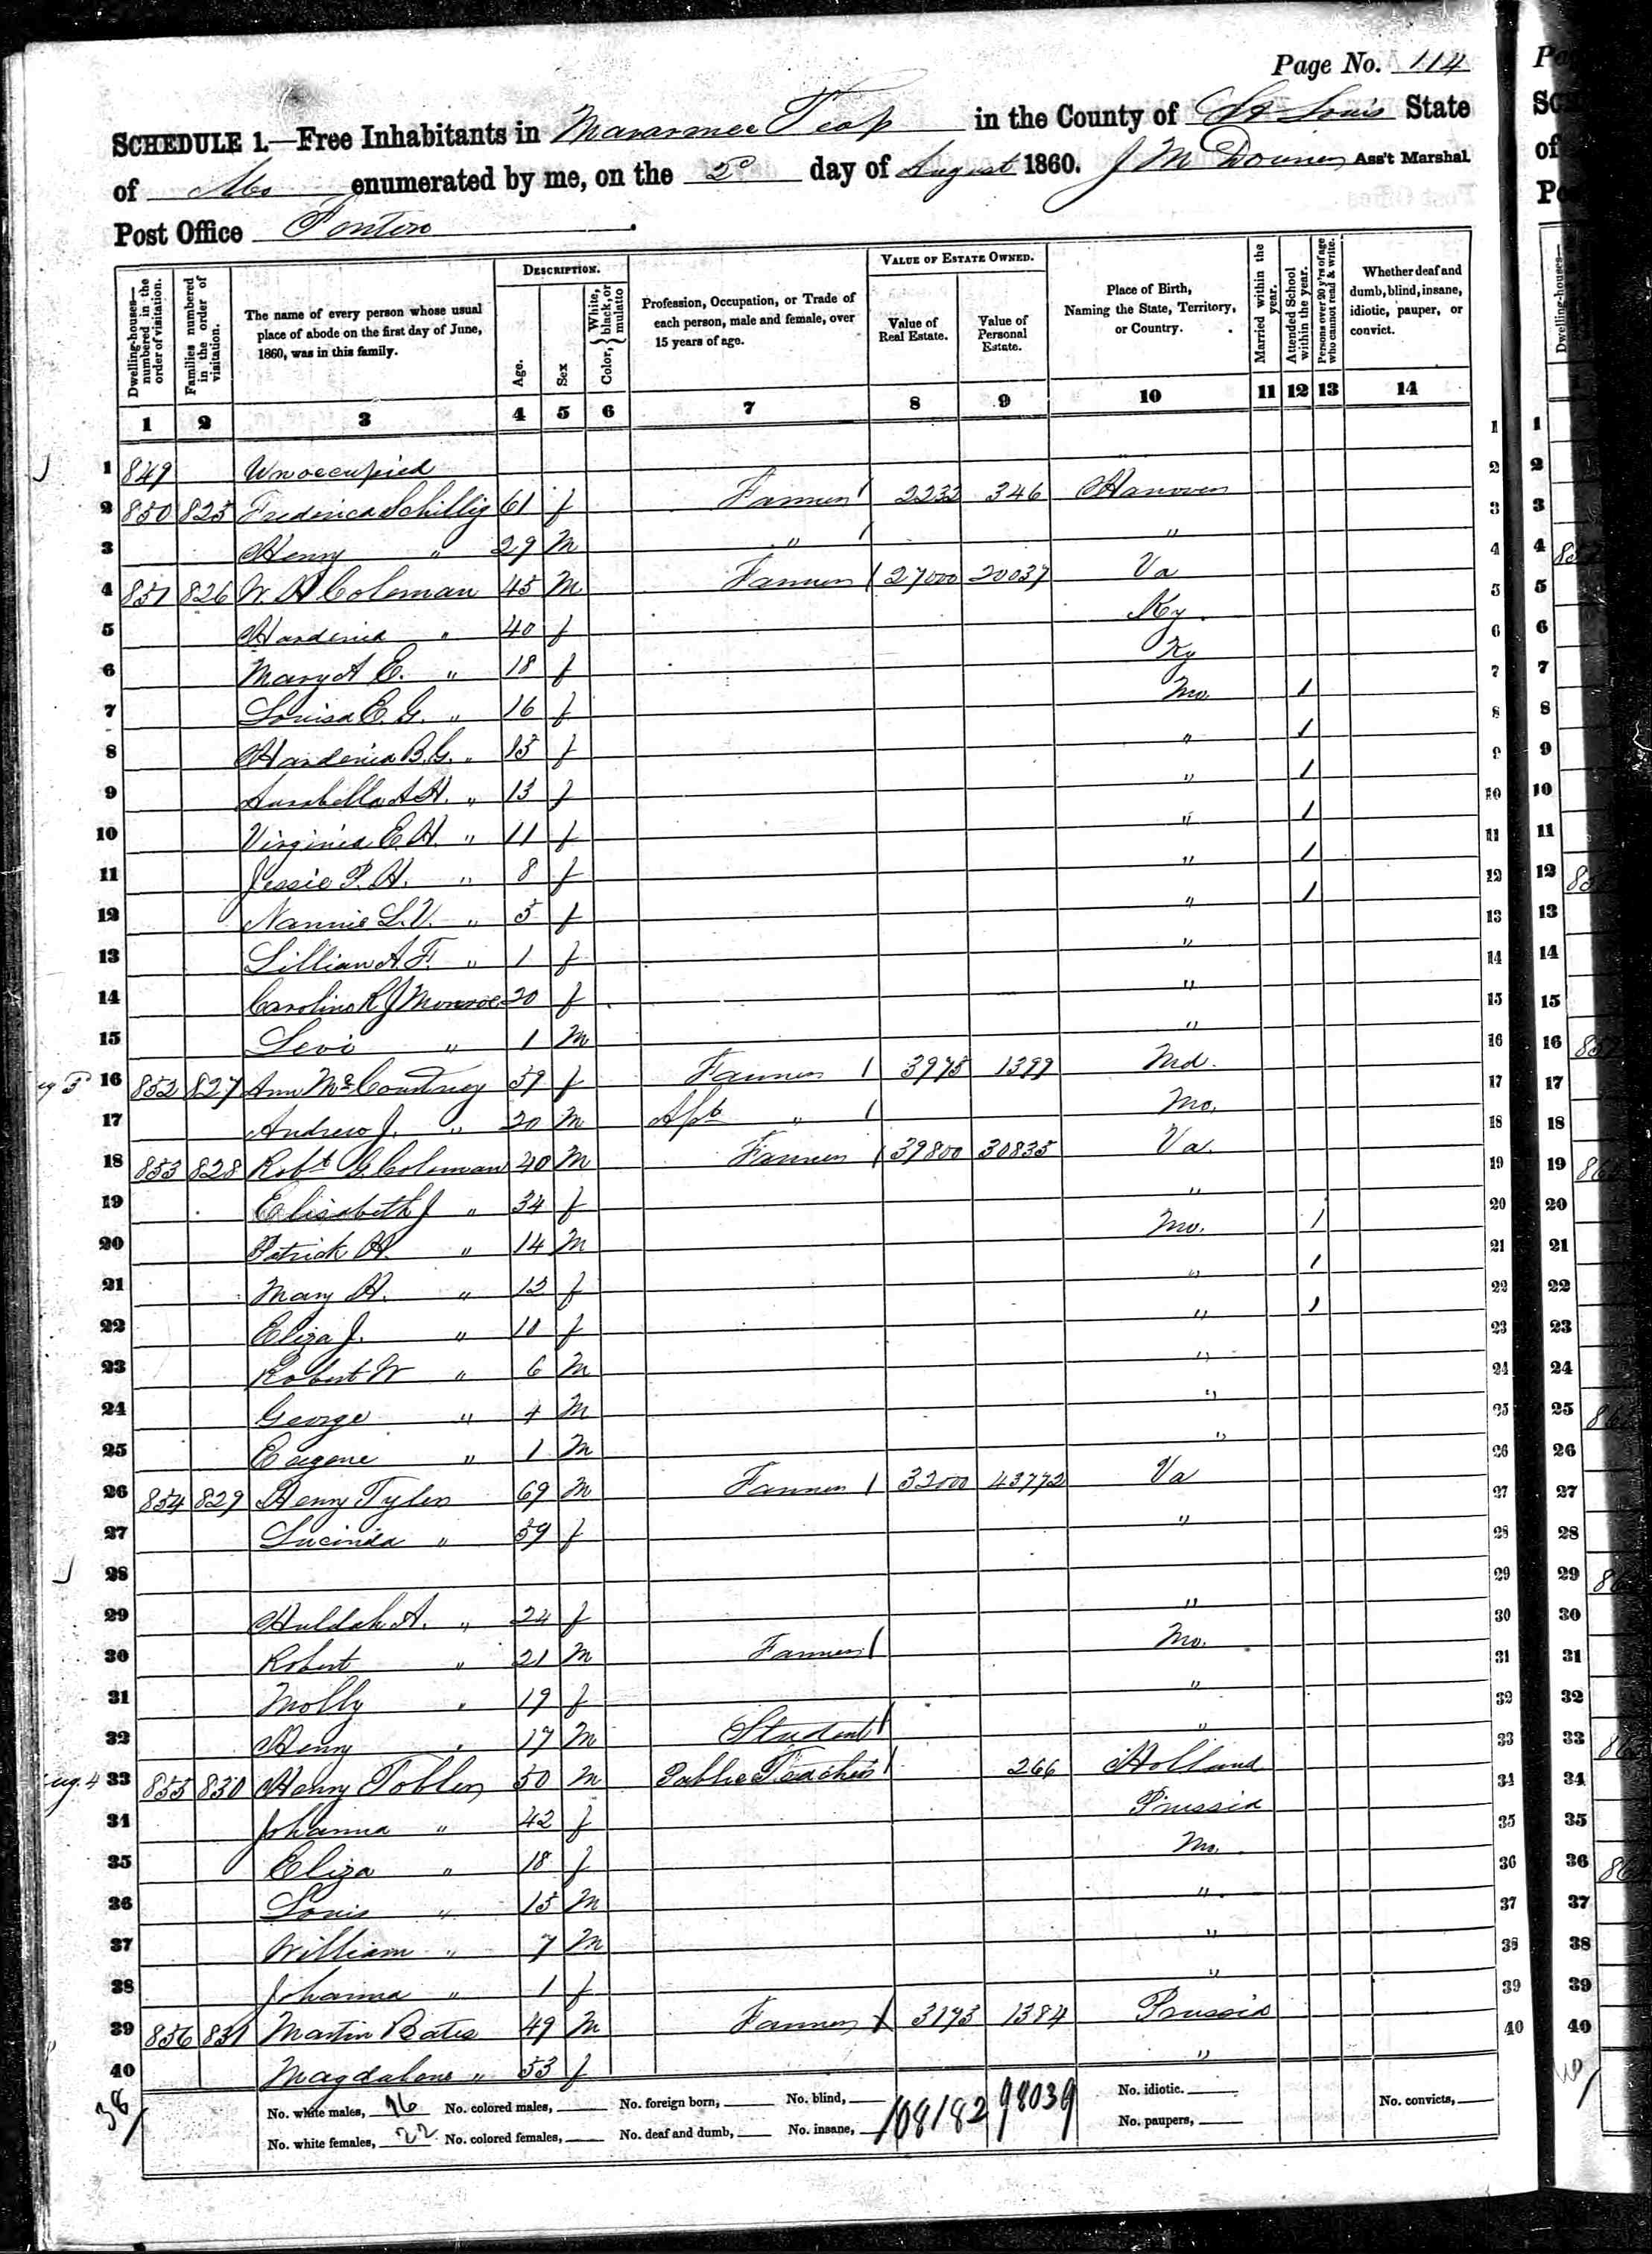 Page No. 114
SCHEDULE 1.—Free Inhabitants in Maramec Tcop in the County of St Louis State
of Mo enumerated by me, on the 2d day of August 1860. J M Ass't Marshal
Post Office Fenton
Dwelling-houses—numbered in the order of visitation.
Families numbered in the order of visitation.
The name of every person whose usual place of abode on the first day of June, 1860, was in this family.
DESCRIPTION.
Age.
Sex
Color, White, black, or mulatto
Profession, Occupation, or Trade of each person, male and female, over 15 years of age.
VALUE OF ESTATE OWNED.
Value of Real Estate.
Value of Personal Estate.
Place of Birth, Naming the State, Territory, or Country.
Married within the year.
Attended School within the year.
Persons over 20 y'rs of age who cannot read & write.
Whether deaf and dumb, blind, insane, idiotic, pauper, or convict.
1 2 3 4 5 6 7 8 9 10 11 12 13 14
1 849 Unoccupied 1
2 850 825 Frederica Schillig 61 f Farmer 2232 346 Hanover 2
3 Henry " 29 M " " 3
4 851 826 W. H Coleman 45 M Farmer 27000 20037 Va 4
5 Hardenia " 40 f Ky. 5
6 Mary A E. " 18 f Ky 6
7 Louisa E. G. " 16 f Mo. 1 7
8 Hardenia B. G. " 15 f " 1 8
9 Anabella A H. " 13 f " 1 9
10 Virginia E. H. " 11 f " 1 10
11 Jessie P. H. " 8 f " 1 11
12 Nannie L. V. " 5 f " 1 12
13 Lillian A. F. " 1 f " 13
14 Caroline R J Monroe 20 f " 14
15 Levi " 1 M " 15
16 852 827 Ann McCourtney 59 f Farmer 3975 1399 Md. 16
17 Andrew J. " 20 M Apt " Mo. 17
18 853 828 Robt G Coleman 40 M Farmer 39800 30835 Va. 18
19 Elisabeth J " 34 f " 19
20 Patrick H. " 14 M Mo. 1 20
21 Mary H. " 12 f " 1 21
22 Eliza J. " 10 f " 1 22
23 Robert W " 6 M " 23
24 George " 4 M " 24
25 Eugene " 1 M " 25
26 854 829 Henry Tyler 69 M Farmer 32000 43772 Va 26
27 Lucinda " 59 f " 27
28 28
29 Huldah A. " 24 f " 29
30 Robert " 21 M Farmer Mo. 30
31 Molly " 19 f " 31
32 Henry " 17 M Student " 32
33 855 830 Henry Tobler 50 M Public Teacher 266 Holland 33
34 Johanna " 42 f Prussia 34
35 Eliza " 18 f Mo. 35
36 Louis " 15 M " 36
37 William " 7 M " 37
38 Johanna " 1 f " 38
39 856 831 Martin Bates 49 M Farmer 3193 1384 Prussia 39
40 Magdalene " 53 f " 40
No. white males, 16 No. colored males, No. foreign born, No. blind, 108182 98039 No. idiotic.
No. white females, 22 No. colored females, No. deaf and dumb, No. insane, No. paupers, No. convicts,
38